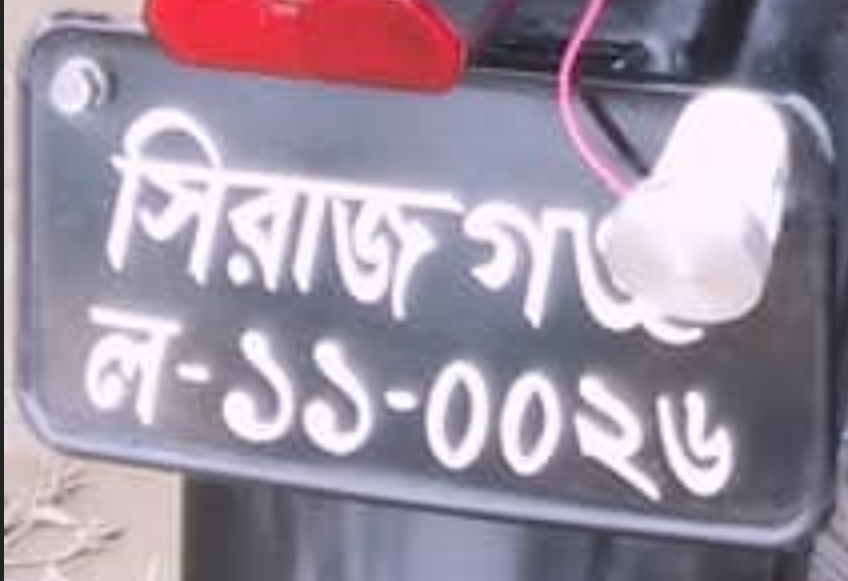 সিরাজ গঞ্জ
ল-১১-০০২৬